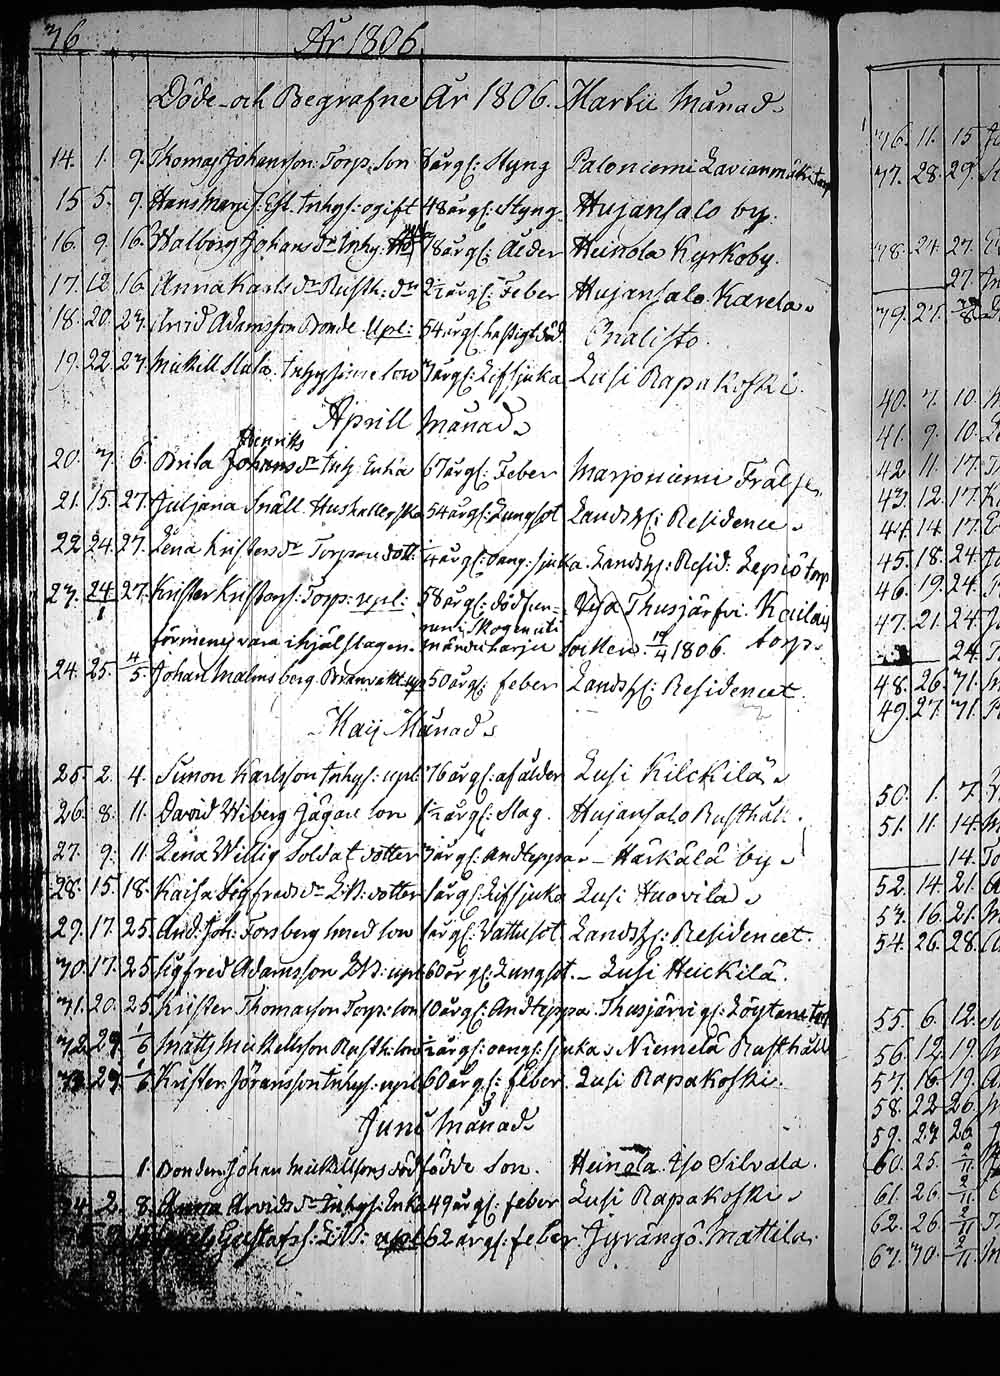 36 År 1806.
Döde och Begrafne År 1806. Martii Månad
14. 1. 9. Thomas Johansson: Torp. Son 6 årgl: Styng Paloniemi Lavianmäki torp
15 5. 9. Hans Maxis: Est. Inhys: ogift 48 årgl: Styng Hujansalo by.
16. 9. 16. Walborg Johans dr Inhy: 78 årgl: Ålder Heinola Kyrkoby.
17. 12. 16. Anna Karls dr Rusth: dr 2½ årgl: Feber Hujansalo Karela
18. 20. 23. Arvid Adamsson Bonde. Upl: 54 årgl. hastigt död. Onalisto.
19. 22. 23. Mickell Hula. Inhysinne son 3 årgl: Lifsjuka Lusi Rapakoski.
Aprill Månad
Henriks
20. 3. 6. Brita Johans dr Inh: Enka 67 årgl: Feber Marjoniemi Frälse
21. 15. 27. Juljana Snäll. Hushållerska 54 årgl: Lungsot Landsh: Residence
22 24. 27. Lena Kristers dr Torpare dott: ¼ årgl: oang: sjuka. Landsh: Resid: Lepiö torp
23. 24/1 27. Krister Kristers: Torp: upl: 58 årgl: död fun= Thusjärfvi Kailais
nen i Skogen uti
förmenes vara ihjälslagen. månder Harju Socken. 19/4 1806. torp.
24. 25. 4/5. Johan Malmsberg. Brandvakt upl 50 årgl: feber Landsh: Residencet.
Maij Månad
25. 2. 4. Simon Karlsson Inhys: upl: 76 årgl: af ålder Lusi Kilckilä
26. 8. 11. David Wiberg Jägare son 1½ årgl: Slag. Hujansalo Rusthåll.
27. 9. 11. Lena Willig Soldat dotter 3 årgl: Andteppa Härkälä by
28. 15. 18. Kaisa Sigfreds dr L:B: dotter 1 årgl: Lifsjuka Lusi Huovila
29. 17. 25. And: Joh: Forsberg smed son 1 årgl: Vattusot. Landsh: Residencet.
30. 17. 25. Sigfred Adamsson L:B: upl 60 årgl: Lungsot. Lusi Heickilä.
31. 20. 25. Krister Thomasson Torp: son 10 årgl: Andteppa. Thusjärvi gl: Löytana torp
32. 29. 1/6 Matts Mickellsson Rusth: son ½ årgl: oang: sjuka Niemelä Rusthåll
33. 29. 1/6. Krister Göransson Inhys: upl 60 årgl: feber. Lusi Rapakoski.
Juni Månad
1. Bonden Johan Mickellsons död födde Son. Heinola Iso Silvala.
34. 2. 8. Anna Arvids dr Inhys: Enka 49 årgl: feber Lusi Rapakoski
Gustafss: L:B: upl 62 årgl: feber Jyrängö. Mattila.
36. 11. 15
37. 28. 29.
38. 24. 27.
27.
39. 27. 30/8
40. 7. 10.
41. 9. 10.
42. 11. 17.
43. 12. 17.
44. 14. 17.
45. 18. 24.
46. 19. 24.
47. 21. 24.
24.
48. 26. 31.
49. 27. 31.
50. 1. 7.
51. 11. 14.
14.
52. 14. 21.
53. 16. 21.
54. 26. 28.
55. 6. 12.
56. 12. 19.
57. 16. 19.
58. 22 26.
59. 23 26.
60. 25. 2/11
61. 26. 2/11
62. 26. 2/11
63. 30. 2/11